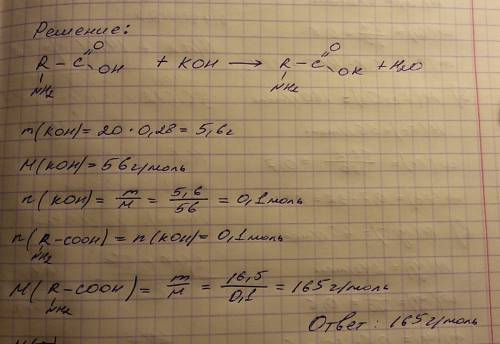 Решение:
R-C=O-OH + KOH → R-C=O-OK + H2O
NH2 NH2
m(KOH) = 20 · 0,28 = 5,6г
M(KOH) = 56 г/моль
n(KOH) = m/M = 5,6/56 = 0,1 моль
n(R-COOH) = n(KOH) = 0,1 моль
NH2
M(R-COOH) = m/M = 16,5/0,1 = 165 г/моль
NH2
Ответ: 165 г/моль